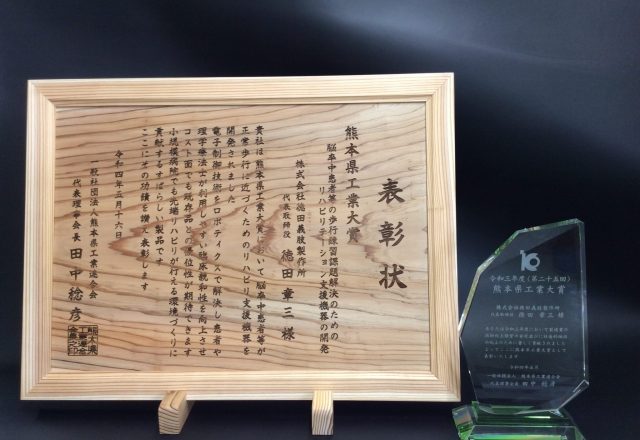 表彰状
熊本県工業大賞
脳卒中患者等の歩行練習課題解決のための
リハビリテーション支援機器の開発
株式会社徳田義肢製作所
代表取締役 徳田章三様
貴社は熊本県工業大賞において脳卒中患者等が
正常歩行に近づくためのリハビリ支援機器を
開発されました
電子制御技術をロボティクスで解決し患者や
理学療法士が利用しやすい臨床親和性を向上させ
コスト面でも既存品との優位性が期待できます
小規模病院でも先端リハビリが行える環境づくりに
貢献するすばらしい製品です
ここにその功績を讃え表彰します
令和四年五月十六日
一般社団法人熊本県工業連合会
代表理事会長 田中稔彦
令和三年度(第二十五回)
熊本県工業大賞
株式会社徳田義肢製作所
代表取締役 徳田章三様
令和四年五月
一般社団法人 熊本県工業連合会
代表理事会長 田中稔彦